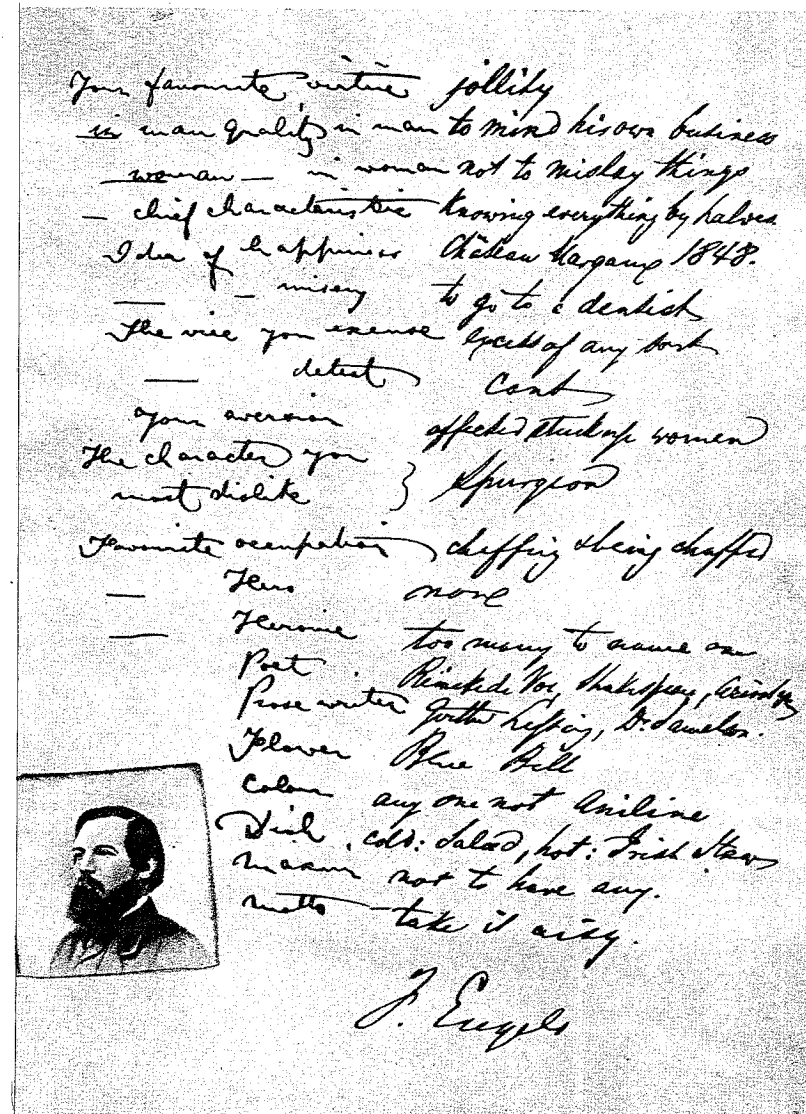 Your favourite virtue jollity
in man quality in man to mind his own business
woman — in woman not to mislay things
— chief characteristic Knowing everything by halves
Idea of happiness Château Margaux 1848.
— — misery to go to a dentist
The vice you excuse excess of any sort
— detest Cant
Your aversion affected stuck up women
The character you
most dislike } Spurgeon
Favourite occupation chaffing & being chaffed
— Hero none
— Heroine too many to name one
Poet Reineke de Vos, Shakespeare, Ariosto
Prose writer Goethe Lessing, Dr Samelson.
Flower Blue Bell
Colour any one not Aniline
Dish. cold: Salad, hot: Irish Stew
maxim not to have any.
motto — take it aisy.
F. Engels